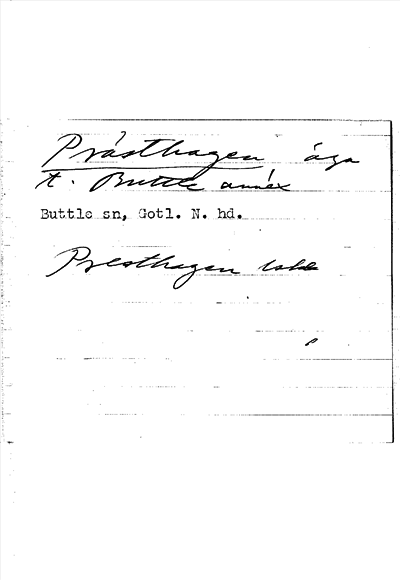 Prästhagen äga
t. Buttle annex
Buttle sn, Gotl. N. hd.
Presthagen